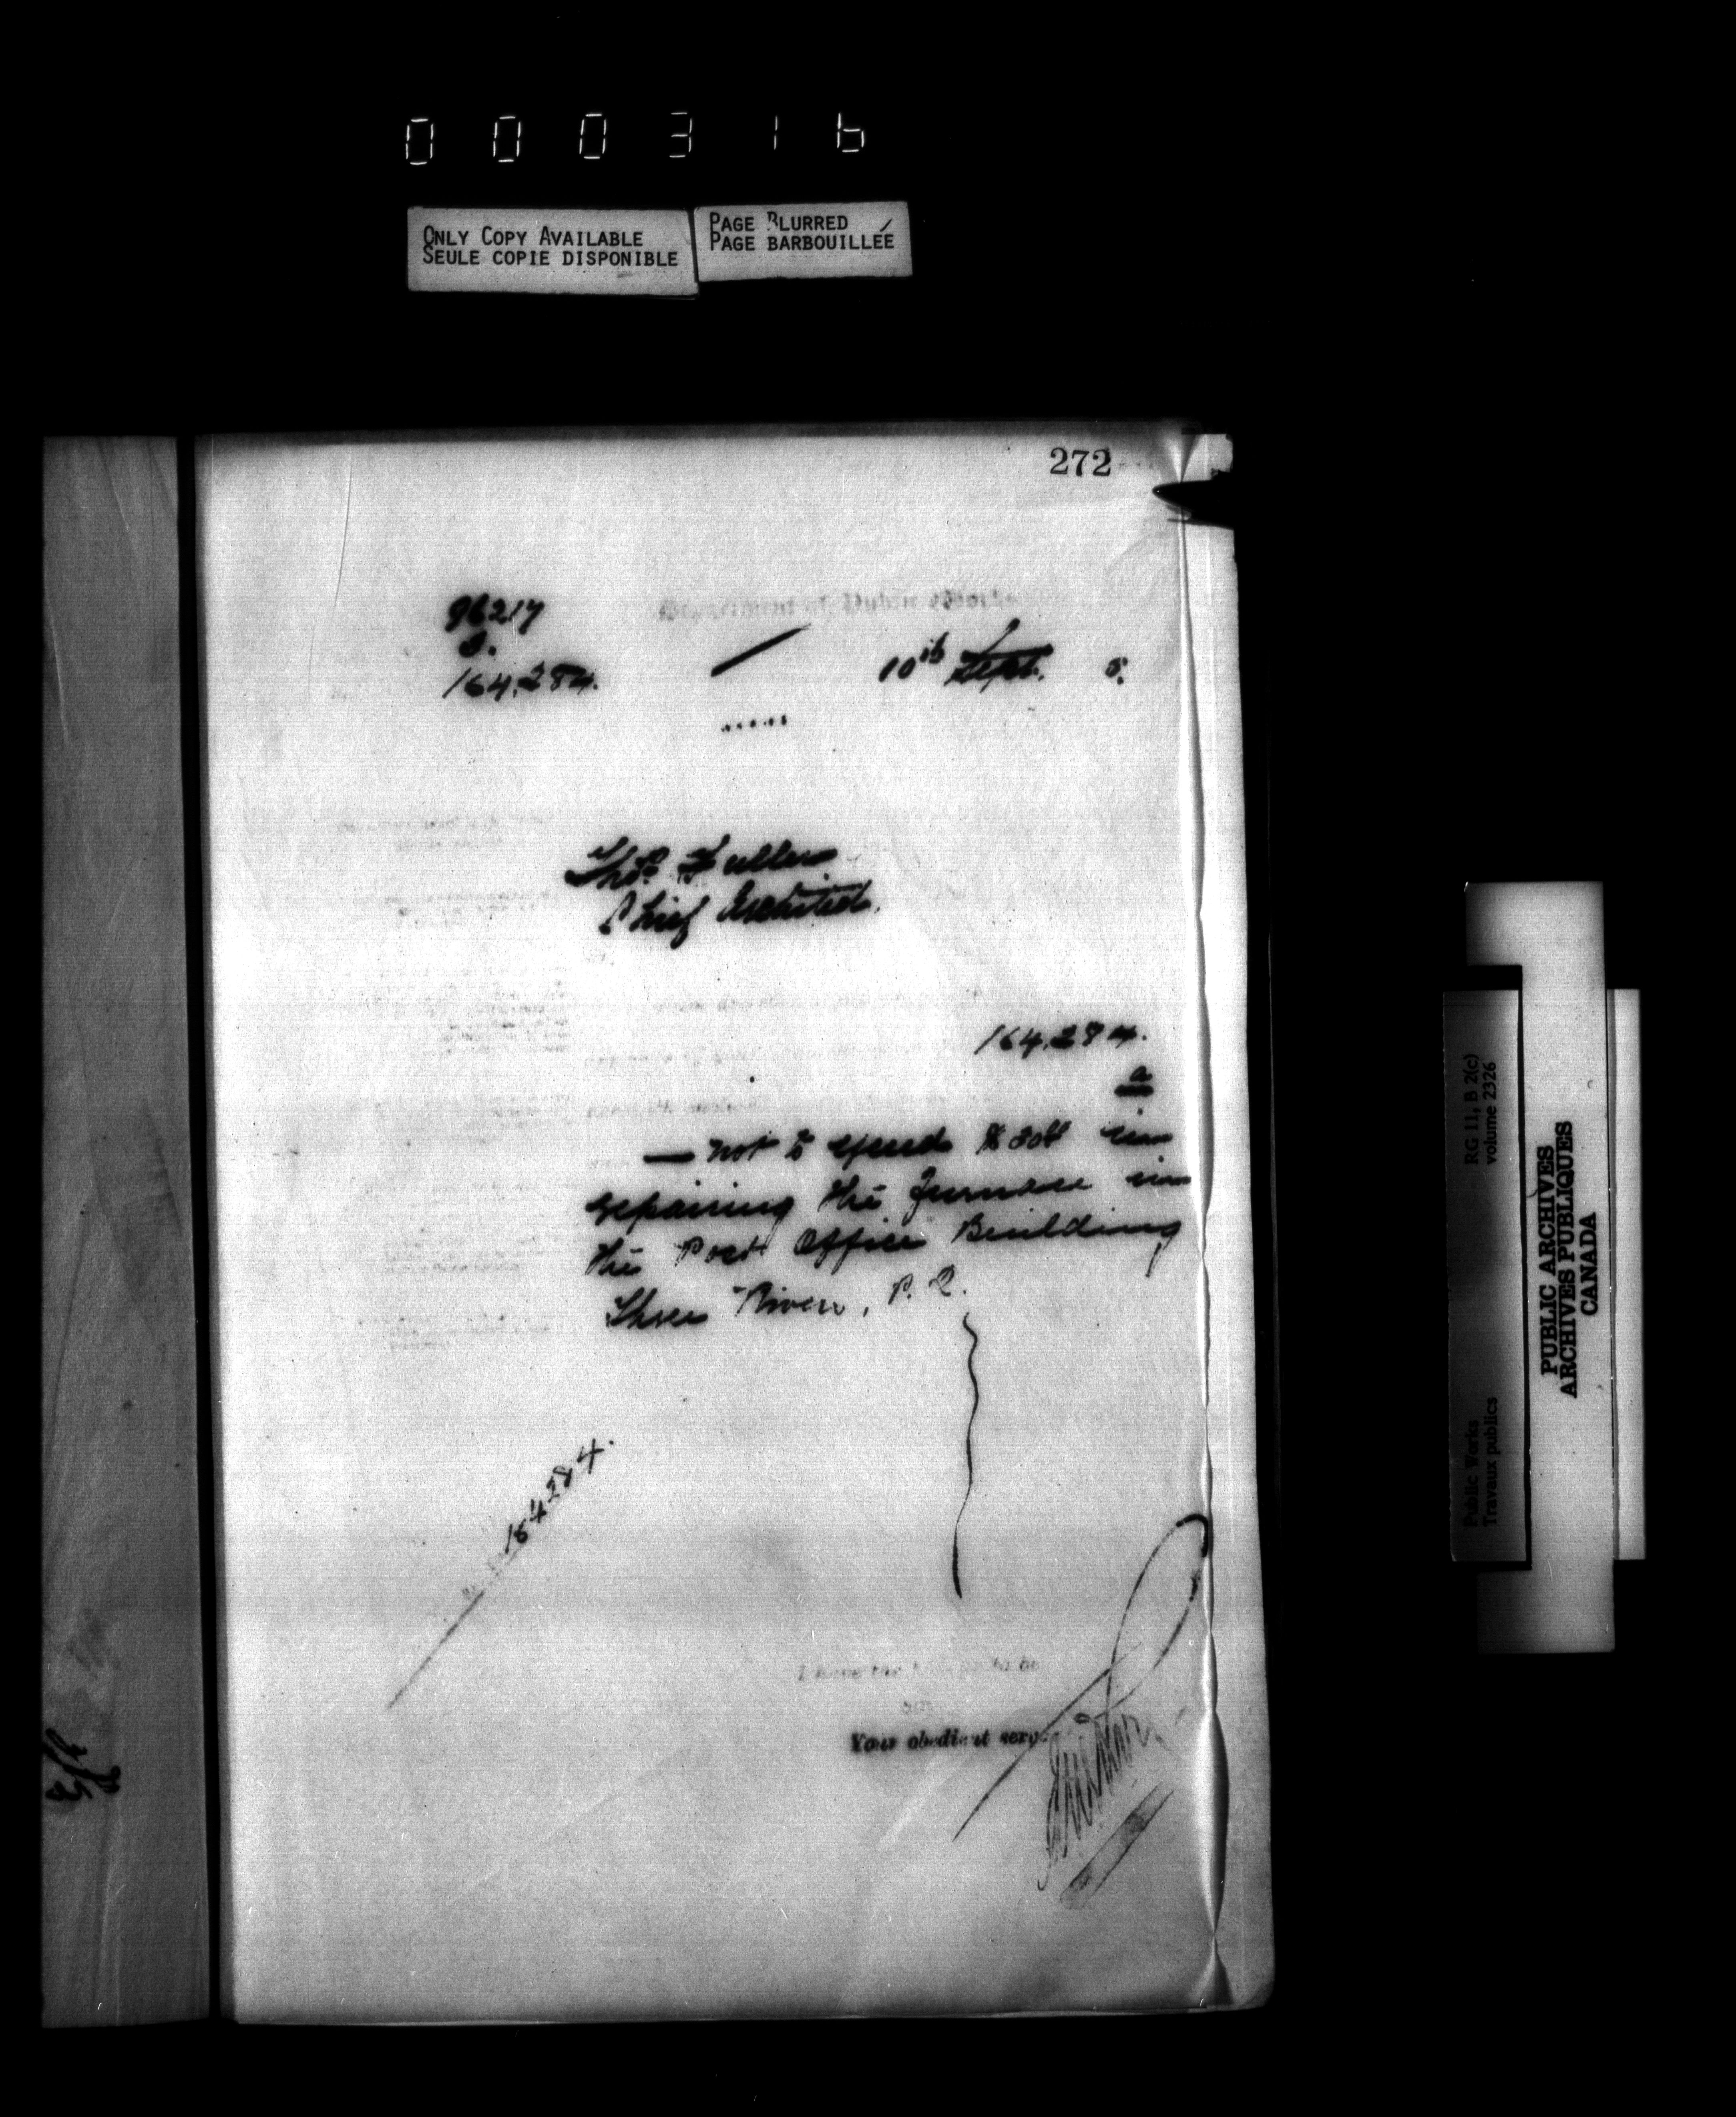 000316
ONLY COPY AVAILABLE
SEULE COPIE DISPONIBLE
PAGE BLURRED
PAGE BARBOUILLÉE
272
Department of Public Works
96217
164,284.
10th Sept. 5.
Thos Fuller
Chief Architect.
164,284.
a
— not to spend $304 in
repairing the furnace in
the Post Office Building
Three Rivers, P.Q.
164284.
I have the honor to be
Sir
Your obedient serv
PUBLIC ARCHIVES
ARCHIVES PUBLIQUES
CANADA
RG 11, B 2(c)
volume 2326
Public Works
Travaux publics